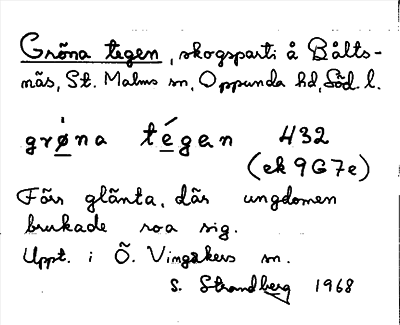 Gröna tegen, skogsparti å Bålts-
näs, St. Malms sn, Oppunda hd, Söd. l.
grø̲na té̲gen 432
(ek 9G7e)
Förr glänta, där ungdomen
brukade roa sig.
Uppt. i Ö. Vingåkers sn.
S. Strandberg 1968